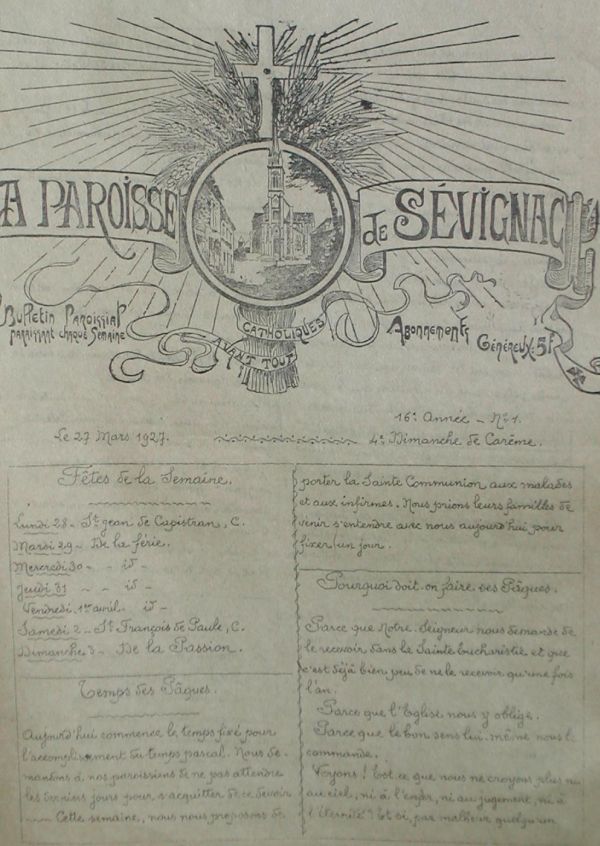 A PAROISSE de SÉVIGNAC
Bulletin Paroissial
paraissant chaque Semaine
CATHOLIQUES
AVANT TOUT
Abonnements
Généreux: 5f
16e Année - No 1.
Le 27 Mars 1927.
4e Dimanche de Carême.
Fêtes de la Semaine.
Lundi 28 - St Jean de Capistran, C.
Mardi 29 - De la férie.
Mercredi 30 - - id -
Jeudi 31 - - id -
Vendredi 1er avril - id -
Samedi 2 - St François de Paule, C.
Dimanche 3 - De la Passion.
Temps des Pâques.
Aujourd'hui commence le temps fixé pour
l'accomplissement du temps pascal. Nous de-
mandons à nos paroissiens de ne pas attendre
les derniers jours pour s'acquitter de ce devoir
Cette semaine, nous nous proposons de
porter la Sainte Communion aux malades
et aux infirmes. Nous prions leurs familles de
venir s'entendre avec nous aujourd'hui pour
fixer un jour.
Pourquoi doit-on faire ses Pâques.
Parce que Notre Seigneur nous demande de
le recevoir dans la Sainte Eucharistie et que
c'est déjà bien peu de ne le recevoir qu'une fois
l'an.
Parce que l'Eglise nous y oblige.
Parce que le bon sens lui-même nous le
commande.
Voyons! Est-ce que nous ne croyons plus ni
au ciel, ni à l'enfer, ni au jugement, ni à
l'éternité? Et si, par malheur quelqu'un